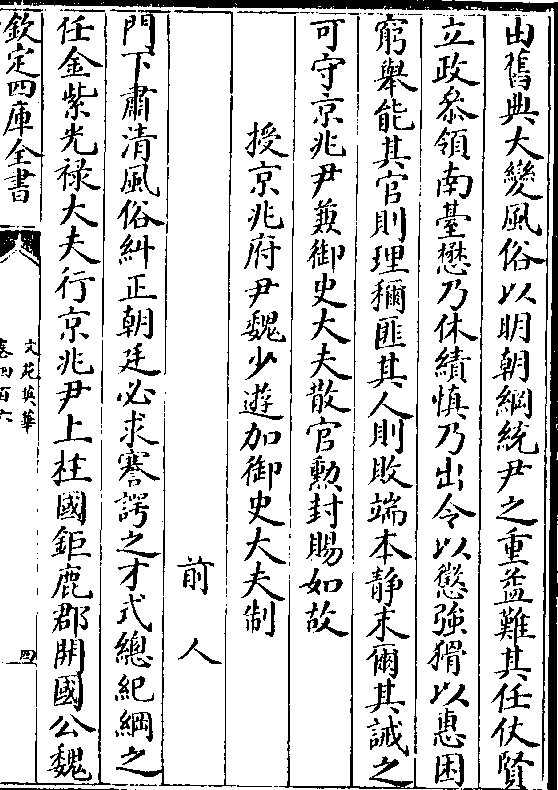 由舊典大變風俗以明朝綱統尹之重益難其任仗賢
立政叅領南臺懋乃休績慎乃出令以懲強猾以惠困
窮舉能其官則理稱匪其人則敗端本静末爾其誡之
可守京兆尹兼御史大夫散官勲封賜如故
授京兆府尹魏少遊加御史大夫制
前人
門下肅清風俗糾正朝廷必求謇諤之才式總紀綱之
任金紫光禄大夫行京兆尹上柱國鉅鹿郡開國公魏
欽定四庫全書
文苑英華
卷四百六
四